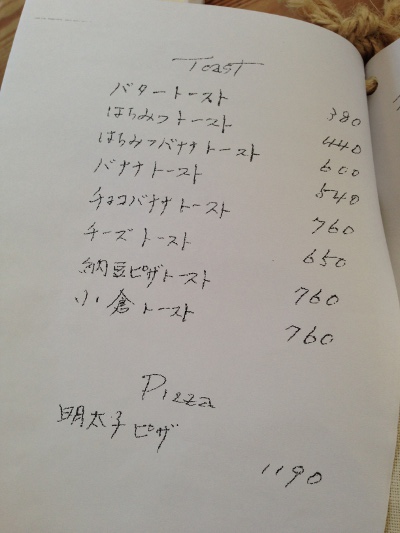 Toast
バタートースト 380
はちみつトースト 440
はちみつバナナトースト 600
バナナトースト 540
チョコバナナトースト 760
チーズトースト 650
納豆ピザトースト 760
小倉トースト 760
Pizza
明太子ピザ 1190